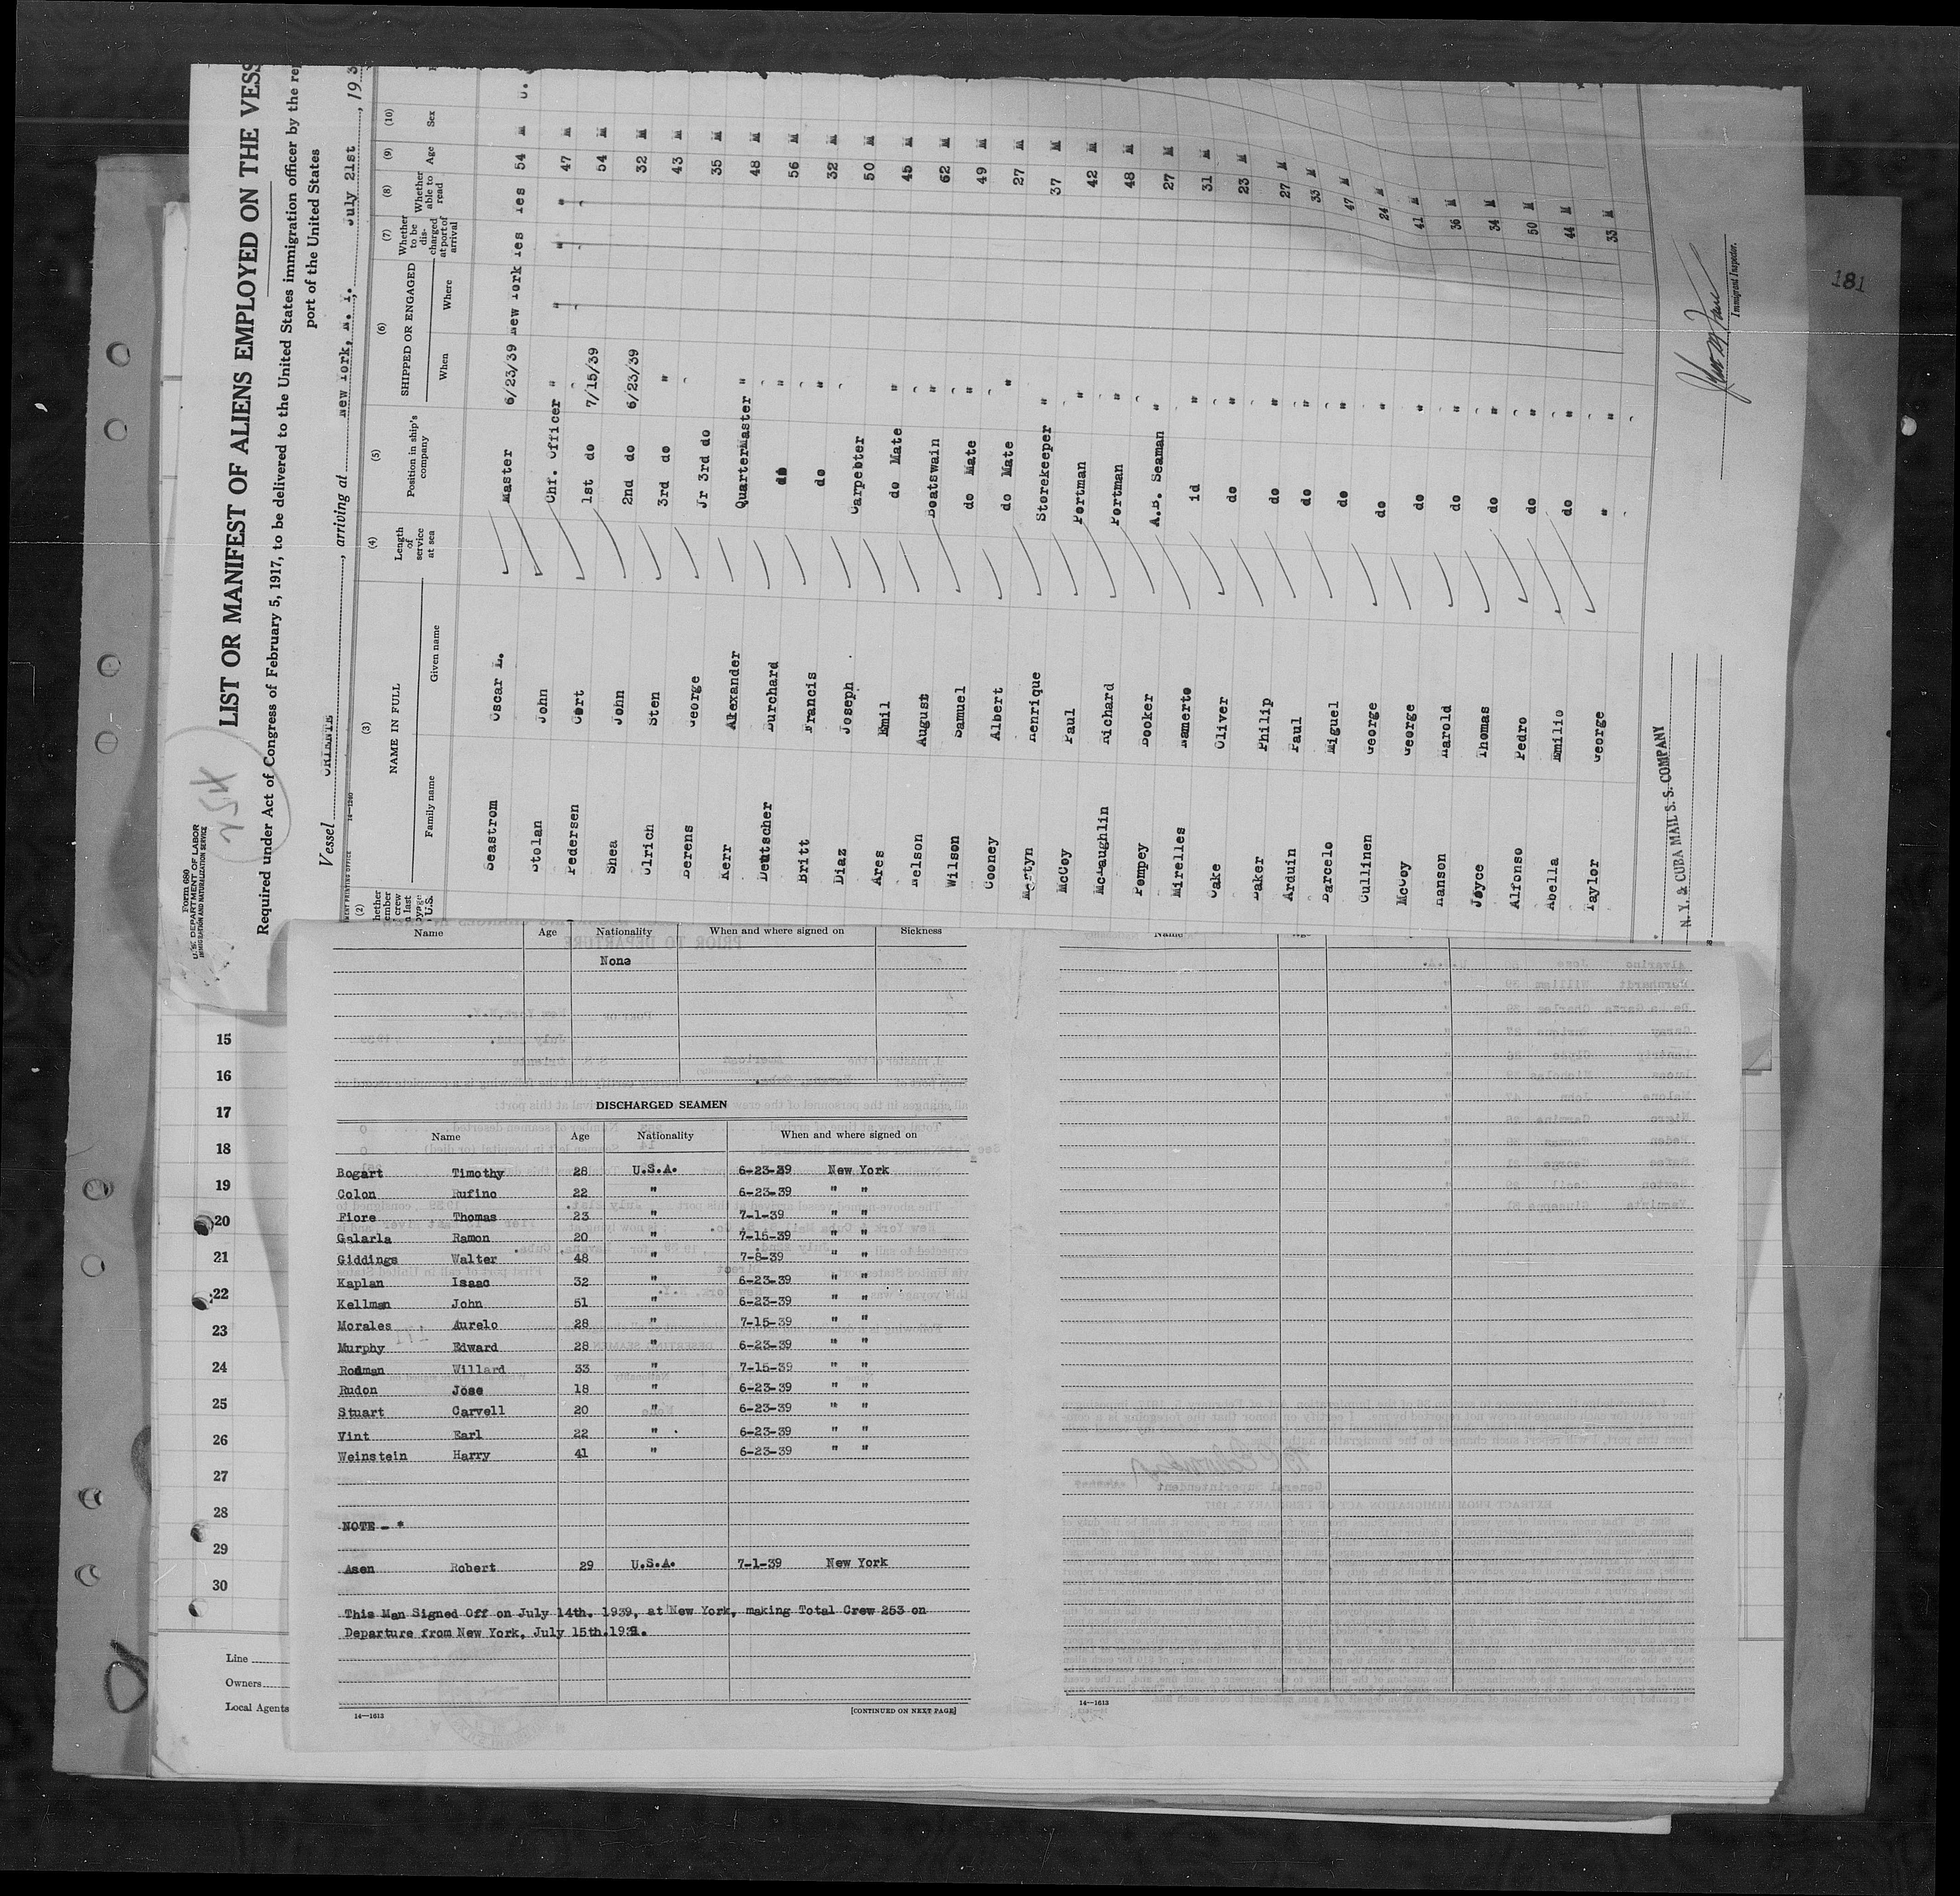 Form 680
U. S. DEPARTMENT OF LABOR
IMMIGRATION AND NATURALIZATION SERVICE
LIST OR MANIFEST OF ALIENS EMPLOYED ON THE VESS
Required under Act of Congress of February 5, 1917, to be delivered to the United States immigration officer by the re
port of the United States
Vessel ORIENTE, arriving at New York, N. Y., July 21st, 193
14—1240
(2) (3) (4) (5) (6) (7) (8) (9) (10)
NAME IN FULL Length of service at sea Position in ship's company SHIPPED OR ENGAGED Whether to be discharged at port of arrival Whether able to read Age Sex
Family name Given name When Where
Seastrom Oscar L. Master 6/23/39 New York Yes Yes 54 M U.
Stolan John Chf. Officer " " " " 47 M
Pedersen Cort 1st do 7/15/39 54 M
Shea John 2nd do 6/23/39 32 M
Ulrich Sten 3rd do " 43 M
Berens George Jr 3rd do 35 M
Kerr Alexander QuarterMaster " 48 M
Deutscher Burchard do " 56 M
Britt Francis do " 32 M
Diaz Joseph Carpebter 50 M
Ares Emil do Mate " 45 M
Nelson August Boatswain " 62 M
Wilson Samuel do Mate " 49 M
Cooney Albert do Mate " 27 M
Martyn Henrique Storekeeper " 37 M
McCoy Paul Portman " 42 M
McLaughlin Richard Portman " 48 M
Pompey Booker A.B. Seaman " 27 M
Mirelles Damerto id " 31 M
Cake Oliver do " 23 M
Baker Philip do " 27 M
Arduin Paul do " 33 M
Barcelo Miguel do " 47 M
Cullinen George do " 24 M
McCoy George do " 41 M
Hanson Harold do " 36 M
Joyce Thomas do " 34 M
Alfonso Pedro do " 50 M
Abella Emilio do " 44 M
Taylor George " " 33 M
N. Y. & CUBA MAIL S. S. COMPANY
Immigrant Inspector.
181
Name Age Nationality When and where signed on Sickness
None
DISCHARGED SEAMEN
Name Age Nationality When and where signed on
Bogart Timothy 28 U.S.A. 6-23-39 New York
Colon Rufino 22 " 6-23-39 " "
Fiore Thomas 23 " 7-1-39 " "
Galarla Ramon 20 " 7-15-39 " "
Giddings Walter 48 " 7-8-39 " "
Kaplan Isaac 32 " 6-23-39 " "
Kellman John 51 " 6-23-39 " "
Morales Aurelo 28 " 7-15-39 " "
Murphy Edward 28 " 6-23-39 " "
Rodman Willard 33 " 7-15-39 " "
Rudon Jose 18 " 6-23-39 " "
Stuart Carvell 20 " 6-23-39 " "
Vint Earl 22 " 6-23-39 " "
Weinstein Harry 41 " 6-23-39 " "
NOTE - *
Asen Robert 29 U.S.A. 7-1-39 New York
This Man Signed Off on July 14th. 1939, at New York, making Total Crew 253 on
Departure from New York, July 15th.1939.
14—1613
[CONTINUED ON NEXT PAGE]
14—1613
15
16
17
18
19
20
21
22
23
24
25
26
27
28
29
30
Line
Owners
Local Agents